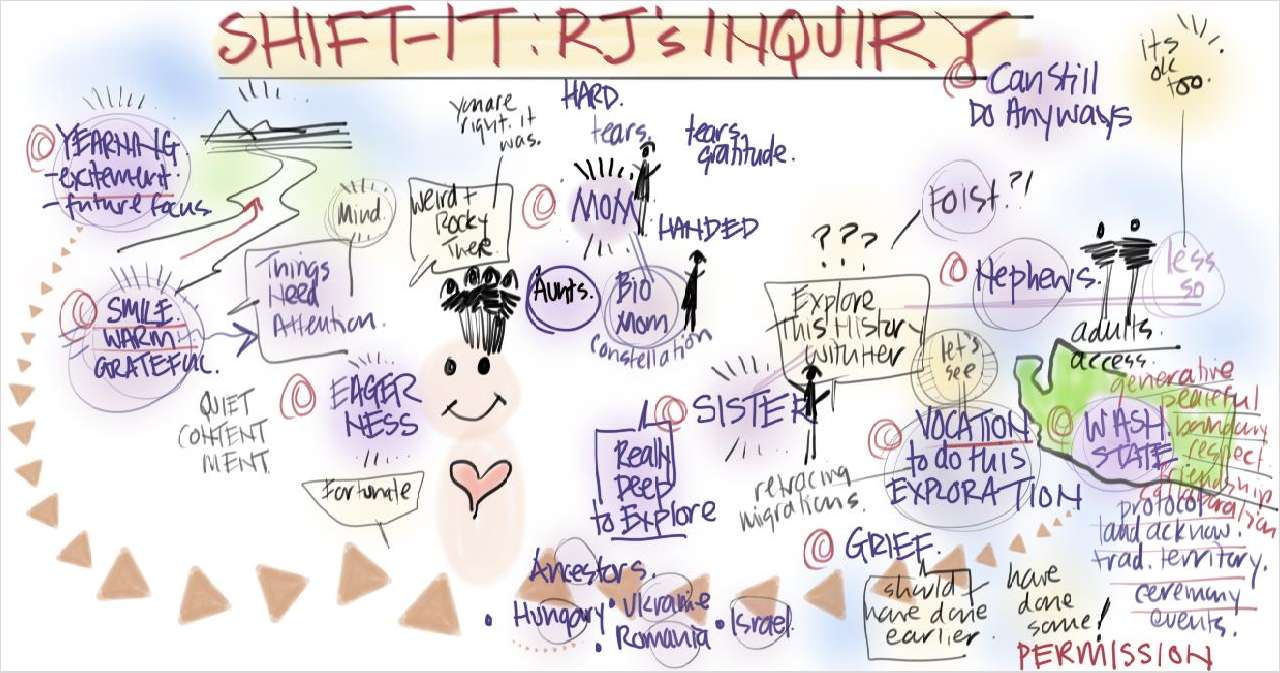 SHIFT-IT: RJ's INQUIRY
YEARNING
-excitement
-future focus
Mind
SMILE
WARM
GRATEFUL
Things
Need
Attention.
QUIET
CONTENT
MENT.
EAGER
NESS
Fortunate
You are
right. it
was.
Weird +
Rocky
There
HARD.
tears.
tears
gratitude.
MOM
HANDED
Aunts.
Bio
Mom
constellation
SISTER
Really
Deep
to Explore
Ancestors.
• Hungary
• Ukraine
• Romania
• Israel
???
Explore
This History
with Her
retracing
migrations.
Foist?!
Can Still
Do Anyways
its
ok
too.
less
so
Nephews.
adults
access.
let's
see
VOCATION
to do this
EXPLORATION
WASH.
STATE
generative
peaceful
boundary
respect
friendship
protocol
land acknow.
trad. territory.
ceremony
events.
GRIEF.
should
have done
earlier
have
done
some!
PERMISSION